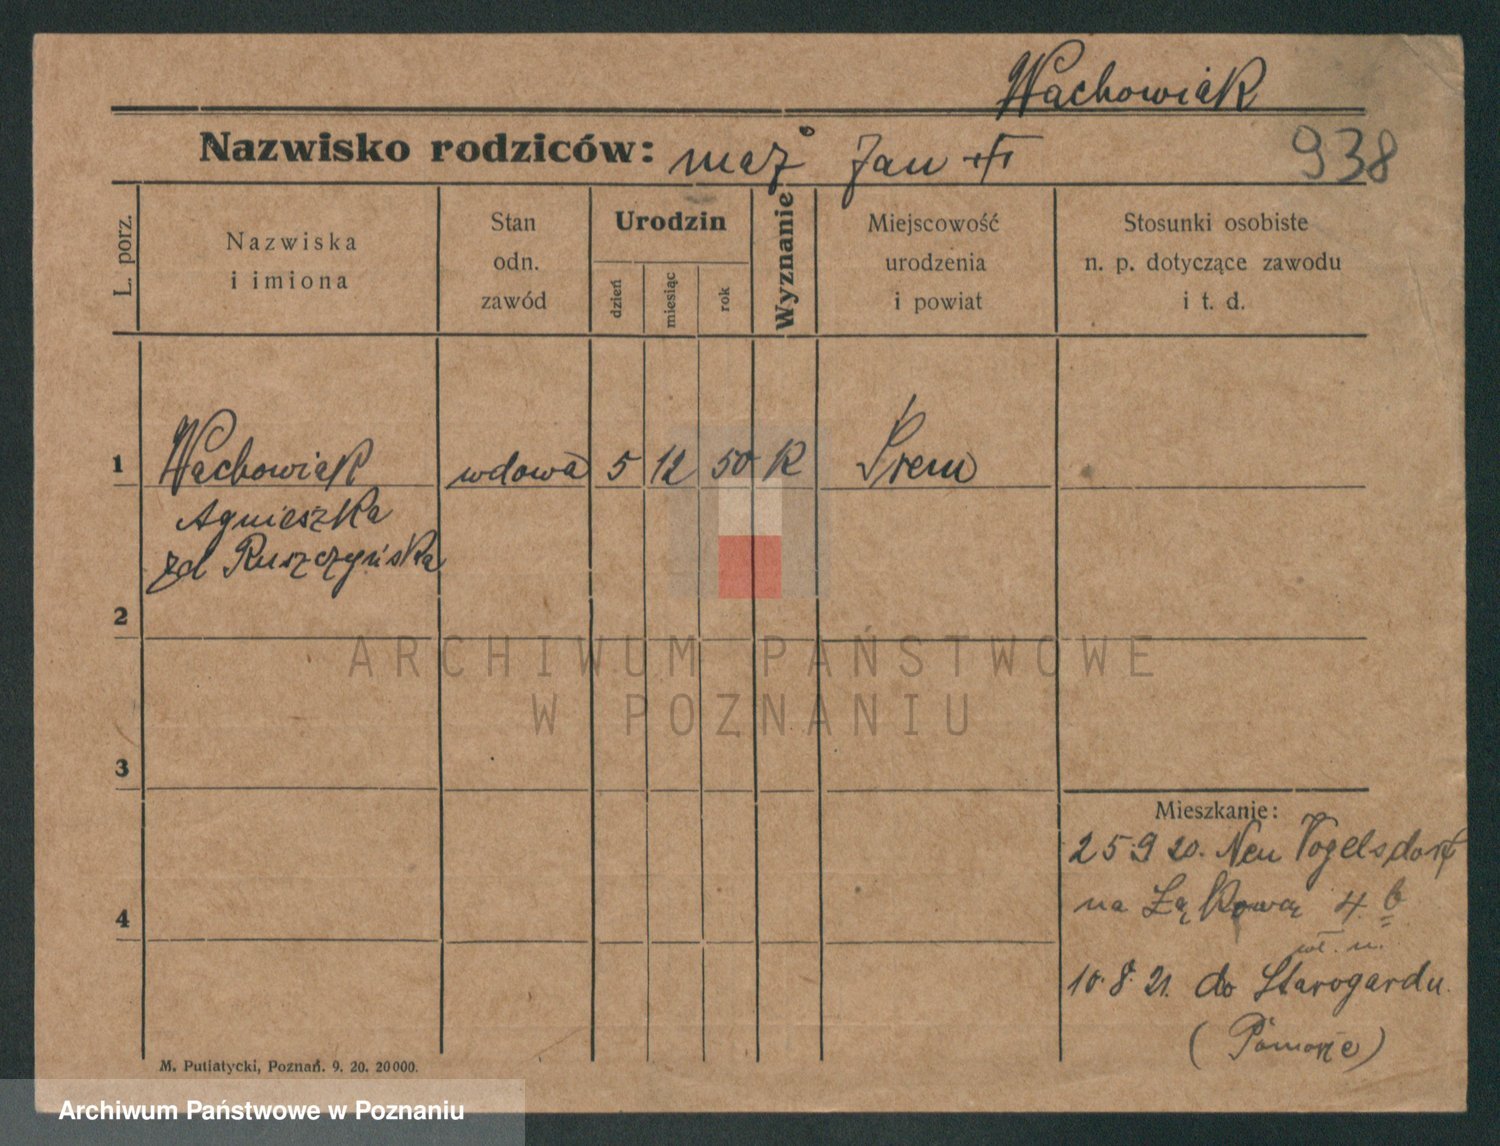 Wachowiak
Nazwisko rodziców: mąż Jan
938
L. porz.
Nazwiska
i imiona
Stan
odn.
zawód
Urodzin
dzień
miesiąc
rok
Wyznanie
Miejscowość
urodzenia
i powiat
Stosunki osobiste
n. p. dotyczące zawodu
i t. d.
1 Wachowiak wdowa 5 12 50 K Śrem
Agnieszka
zd Ruszczyńska
2
ARCHIWUM PAŃSTWOWE
W POZNANIU
3
Mieszkanie:
25 9 20. Neu Vogelsdorf
na Łąkową 4 b
4
10. 8. 21. do Starogardu
(Pomorze)
M. Putiatycki, Poznań. 9. 20. 20000.
Archiwum Państwowe w Poznaniu